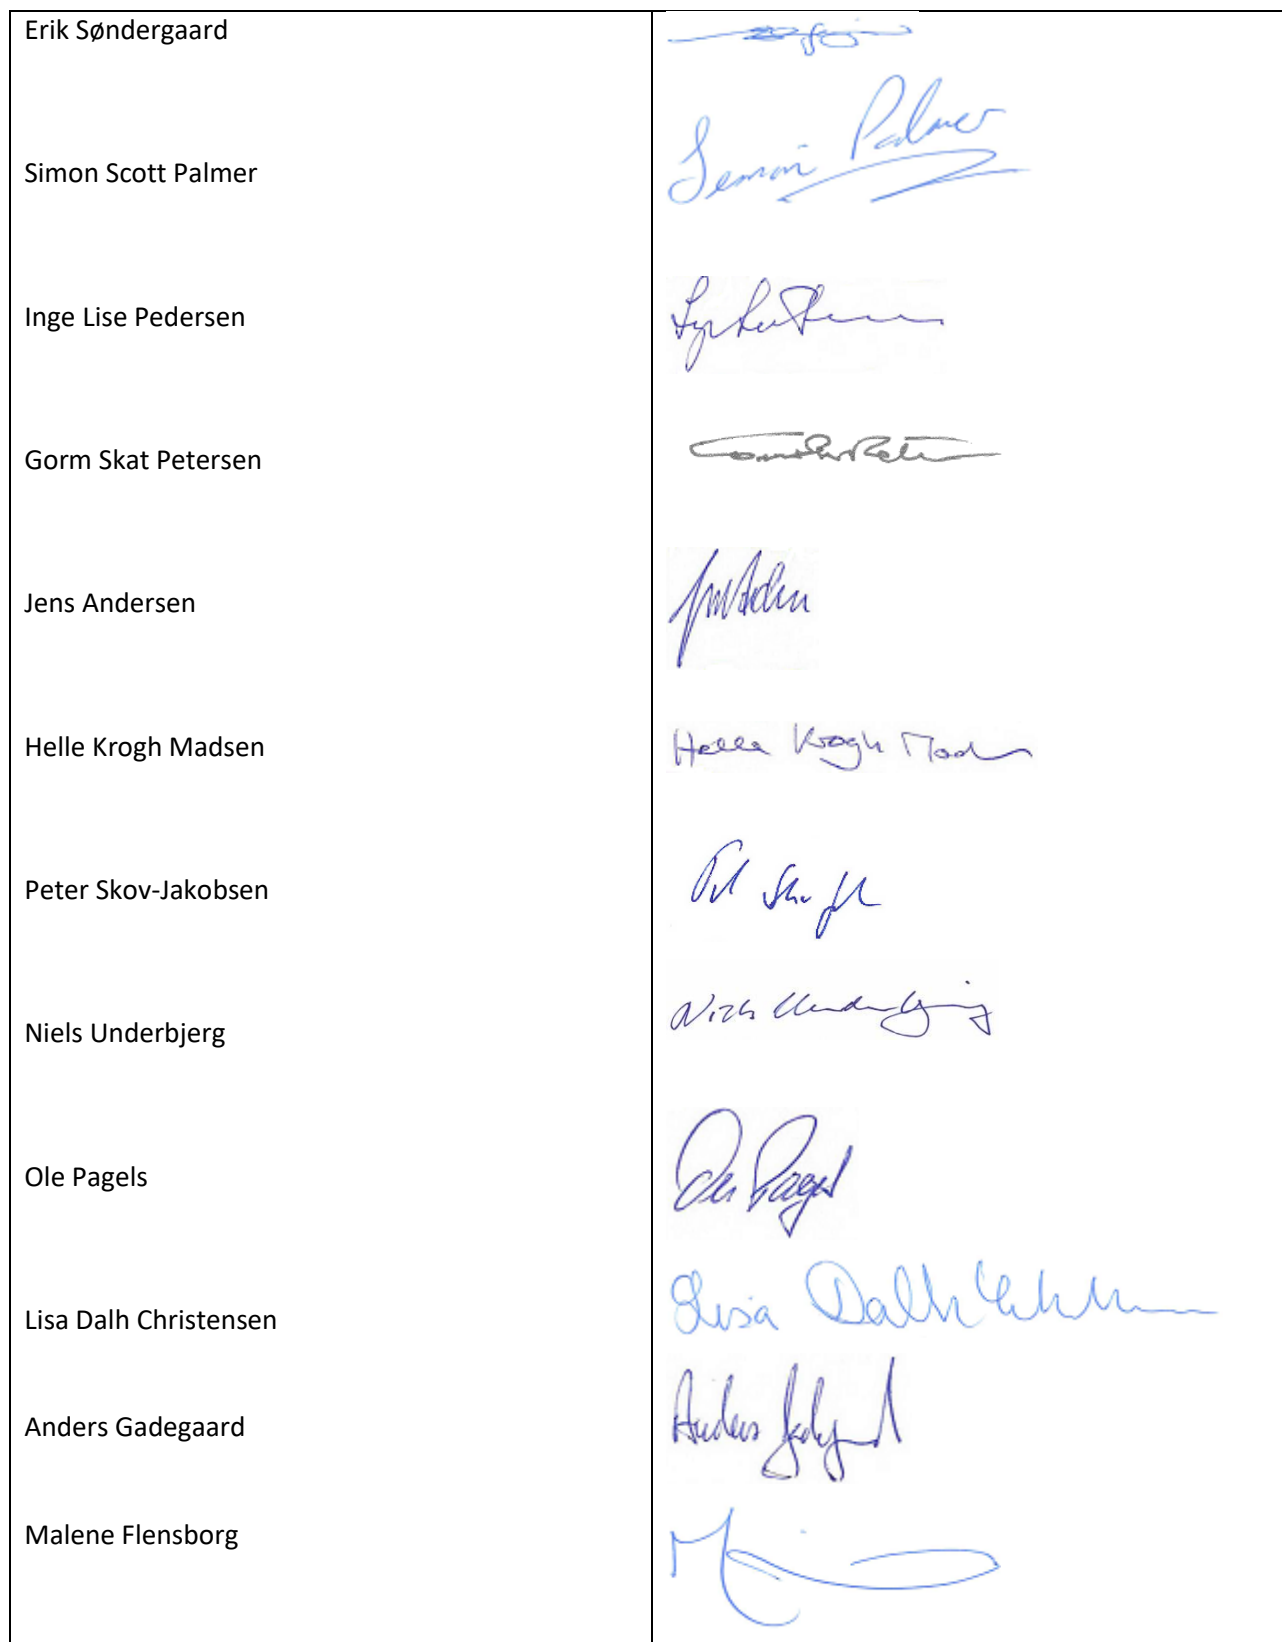 Erik Søndergaard
Simon Scott Palmer
Simon Palmer
Inge Lise Pedersen
Gorm Skat Petersen
Jens Andersen
Helle Krogh Madsen
Helle Krogh
Peter Skov-Jakobsen
Niels Underbjerg
Niels Underbjerg
Ole Pagels
Ole Pagels
Lisa Dalh Christensen
Lisa Dalh
Anders Gadegaard
Anders Gadegaard
Malene Flensborg